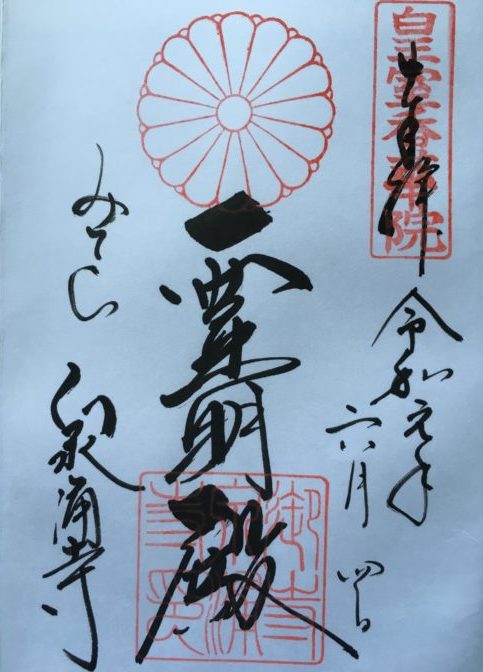 皇室香華院
奉拝
令和元年
六月四日
霊明殿
御寺泉涌寺印
みてら
泉涌寺